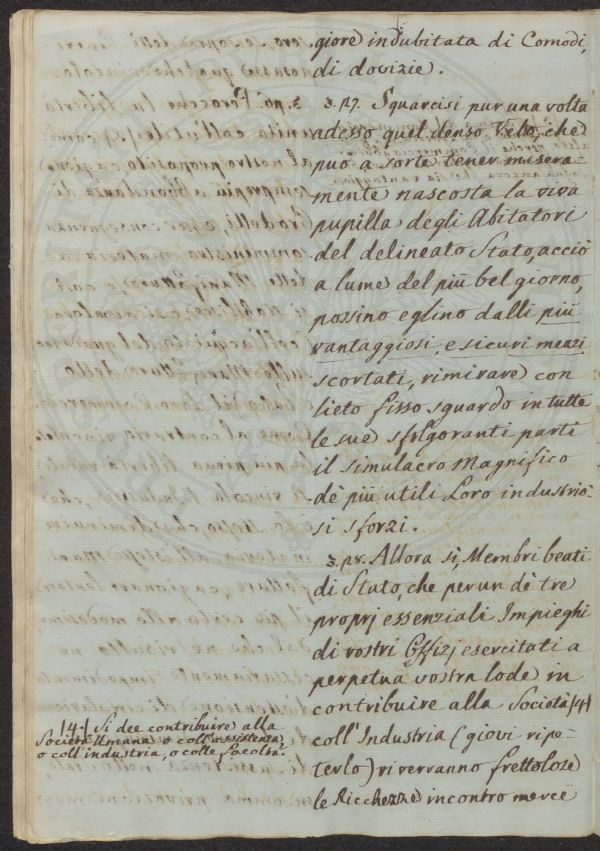 giore indubitata di Comodi,
di dovizie.
3. 27. Squarcisi pur una volta
adesso quel denso Velo, che
può a sorte tener misera-
mente nascosta la viva
pupilla degli Abitatori
del delineato Stato, acciò
a lume del più bel giorno,
possino eglino dalli più
vantaggiosi, e sicuri mezzi
scortati, rimirare con
lieto fisso sguardo in tutte
le sue sfolgoranti parti
il simulacro Magnifico
dè più utili Loro industrio-
si sforzi.
3. 28. Allora sì, Membri beati
di Stato, che per un dè tre
proprj essenziali Impieghi
di vostri Offizj esercitati a
perpetua vostra lode in
contribuire alla Società |4|
coll'Industria (giovi ripe-
terlo) ri verranno frettolose
le Ricchezze incontro mercè
|4| Si dee contribuire alla
Società Umana o coll'assistenza,
o coll'industria, o colle facoltà.